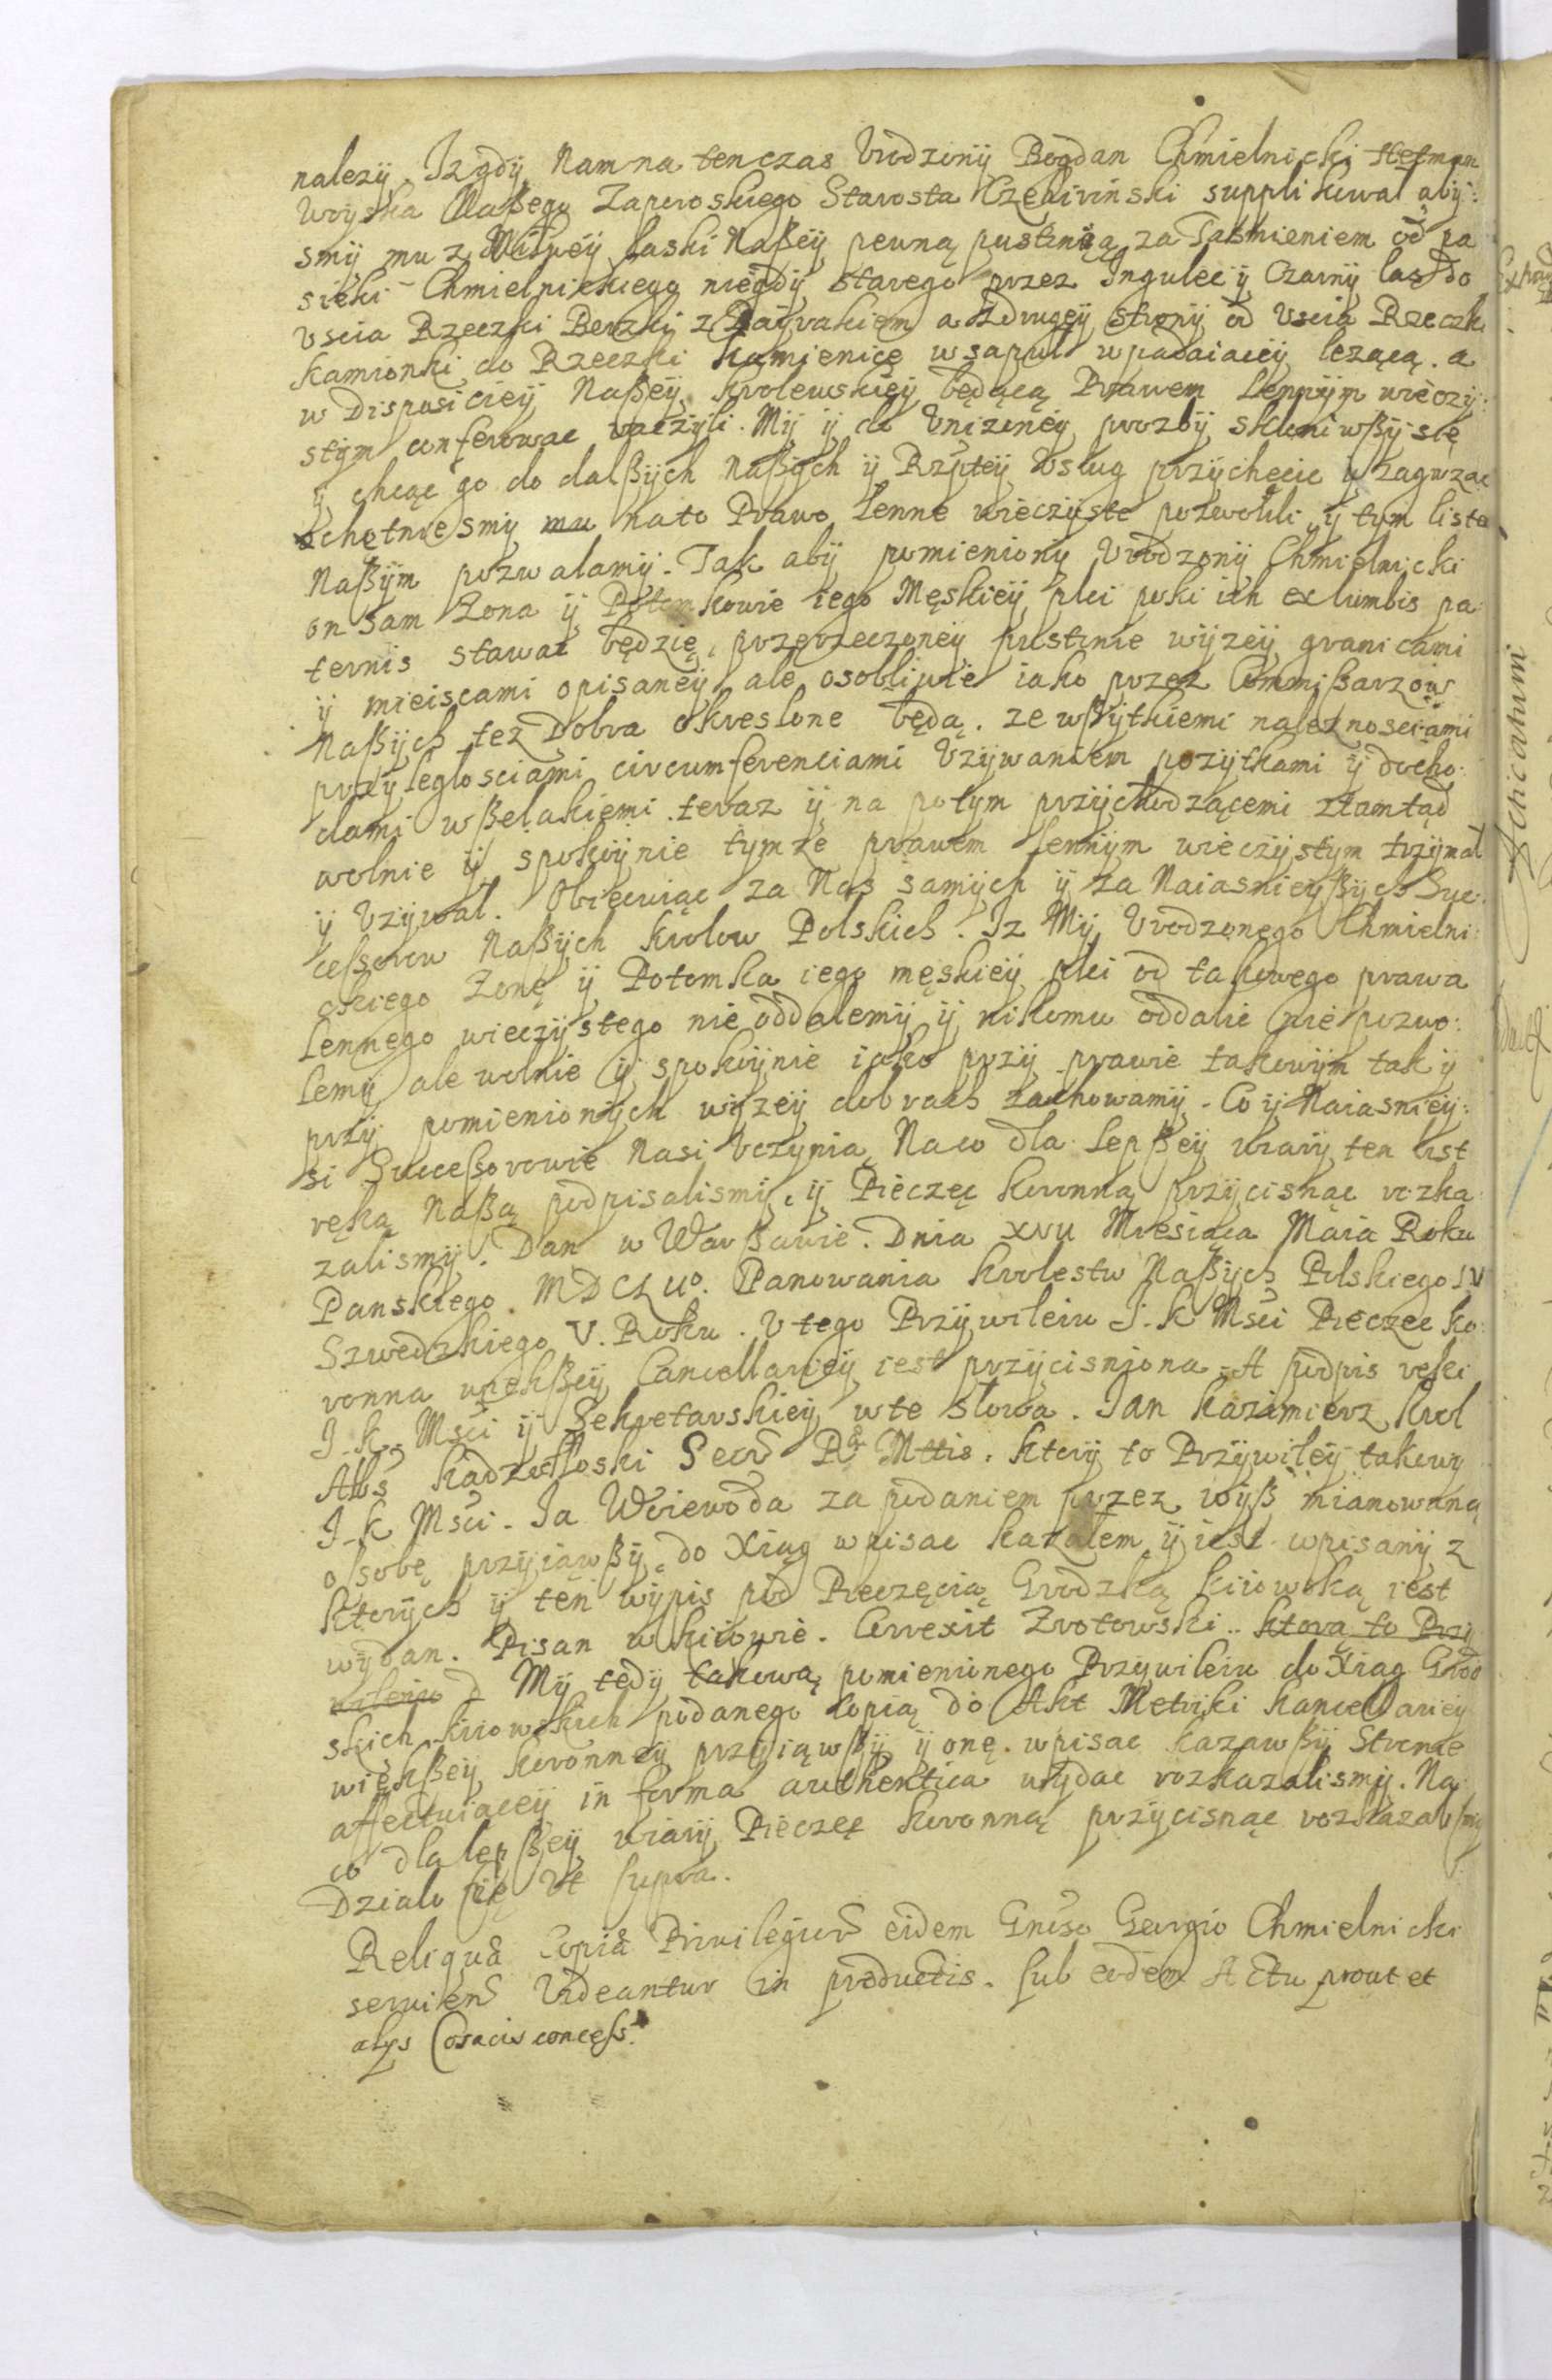 nalezÿ. Iz gdÿ Nam na tenczas Vrodzonÿ Bogdan Chmielnicki Hetman
Woÿska Naßego Zaporoskiego Starosta Czehirinski supplikował abÿ:
smÿ mu z laski Naßeÿ, pewną pustinią za Tasmieniem od pa
sieki Chmielnickiego niegdÿ starego przez Ingulec ÿ Czarnÿ las do
Vscia Rzeczki Berzki z a z drugeÿ stronÿ od Vscia Rzeczki
Kamionki do Rzeczki Kamienicę w sapul wpadaiaceÿ lezącą. a
w Disposicieÿ Naßeÿ Krolewskieÿ będącą Prawem Lennÿm wieczÿ:
stÿm conferowac raczÿli. Mÿ ÿ do Vnizoneÿ prozbÿ skloniwßÿ się
ÿ chcąc go do dalßÿch naßÿch ÿ Rzpteÿ Vslug przÿchęcic ÿ zagrzac
ochotniesmÿ mu na to Prawo Lenne wieczÿste pozwolili, ÿ tym listem
Naßÿm pozwalamÿ. Tak abÿ pomienionÿ Vrodzonÿ Chmielnicki
on sam Zona ÿ Potomkowie iego Męskieÿ plci poki ich ex lumbis pa:
ternis stawac będzie, przerzeczoneÿ pustinie wÿzeÿ granicami
ÿ mieiscami opisaneÿ ale osobliwie iako przez Commißarzow
Naßÿch tez Dobra okreslone będą. ze wßÿtkiemi naleznosciami
przÿleglosciami circumferenciami Vzÿwaniem pozÿtkami ÿ docho:
dami wßelakiemi teraz ÿ na potÿm przÿchodzącemi ztamtąd
wolnie ÿ spokoÿnie tÿmze prawem lennÿm wieczÿstÿm trzÿmał
ÿ Vzÿwał. Obiecuiąc za Nas samÿch ÿ za Naiasnieÿßÿch Suc:
ceßorow Naßÿch Krolow Polskich. Iz Mÿ Vrodzonego Chmielni:
ckiego Zonę ÿ Potomka iego męskieÿ plci od takowego prawa
Lennego wieczÿstego nie oddalemÿ ÿ nikomu oddalic nie pozwo:
lemÿ ale wolnie ÿ spokoÿnie iako przÿ prawie takowÿm tak ÿ
przÿ pomienionÿch wÿzeÿ dobrach zachowamÿ. Co ÿ Naiasnieÿ:
si Succeßorowie Nasi Vczÿnią. Na co dla lepßeÿ wiarÿ ten list
ręką Naßą podpisalismÿ, ÿ Pieczęc koronną przÿcisnąc rozka
zalismÿ. Dan w Warßawie. Dnia XVII Miesiąca Maia Roku
Panskiego. Panowania Krolestw Naßÿch Polskiego IV
Szwedzkiego V. Roku. V tego Przÿwileiu J. K Msci Pieczec ko:
ronna wiekßeÿ Cancellarieÿ iest przÿcisniona. A podpis ręki
J. K. Msci ÿ Sekretarskieÿ w te słowa. Jan Kazimierz Krol
Secr Rae Mttis. Ktorÿ to Przÿwileÿ takowÿ
J. K Msci. Ja Woiewoda za podaniem przez wÿß mianowaną
osobę przÿiąwßÿ, do Xiąg wpisac kazałem ÿ iest wpisanÿ z
ktorÿch ÿ ten wÿpis pod Pieczęcią Grodzką kiiowską iest
wÿdan. Pisan w kiiowie. Correxit Zrotowski. ktorą to Przÿ
wileiu Mÿ tedÿ takową pomienionego Przÿwileiu do Xiąg Grod
skich kiiowskich podanego copią do Akt Metrÿki kancellarieÿ
wiekßeÿ koronneÿ przÿiąwßÿ ÿ onę wpisac kazawßÿ Stronie
affectuiąceÿ in forma authentica wÿdac rozkazalismÿ. Na
co dla lepßeÿ wiarÿ Pieczęc koronną przÿcisnąc rozkazalismÿ
Działo się Vt supra.
Reliqua Copia Privilegior eidem Gnoso Georgio Chmielnicki
servien Videantur in productis. sub eodem Actu prout et
alÿs Cosacis concess.